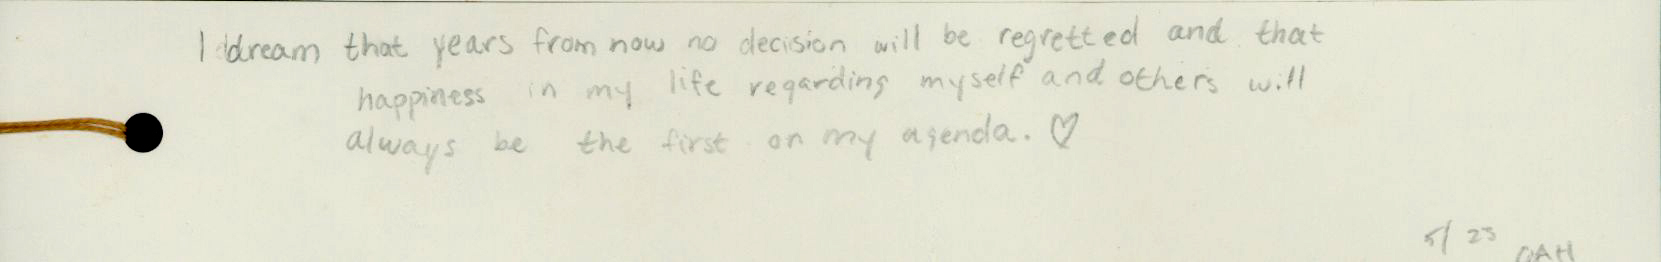 I dream that years from now no decision will be regretted and that
happiness in my life regarding myself and others will
always be the first on my agenda. ♡
5/23
OAH